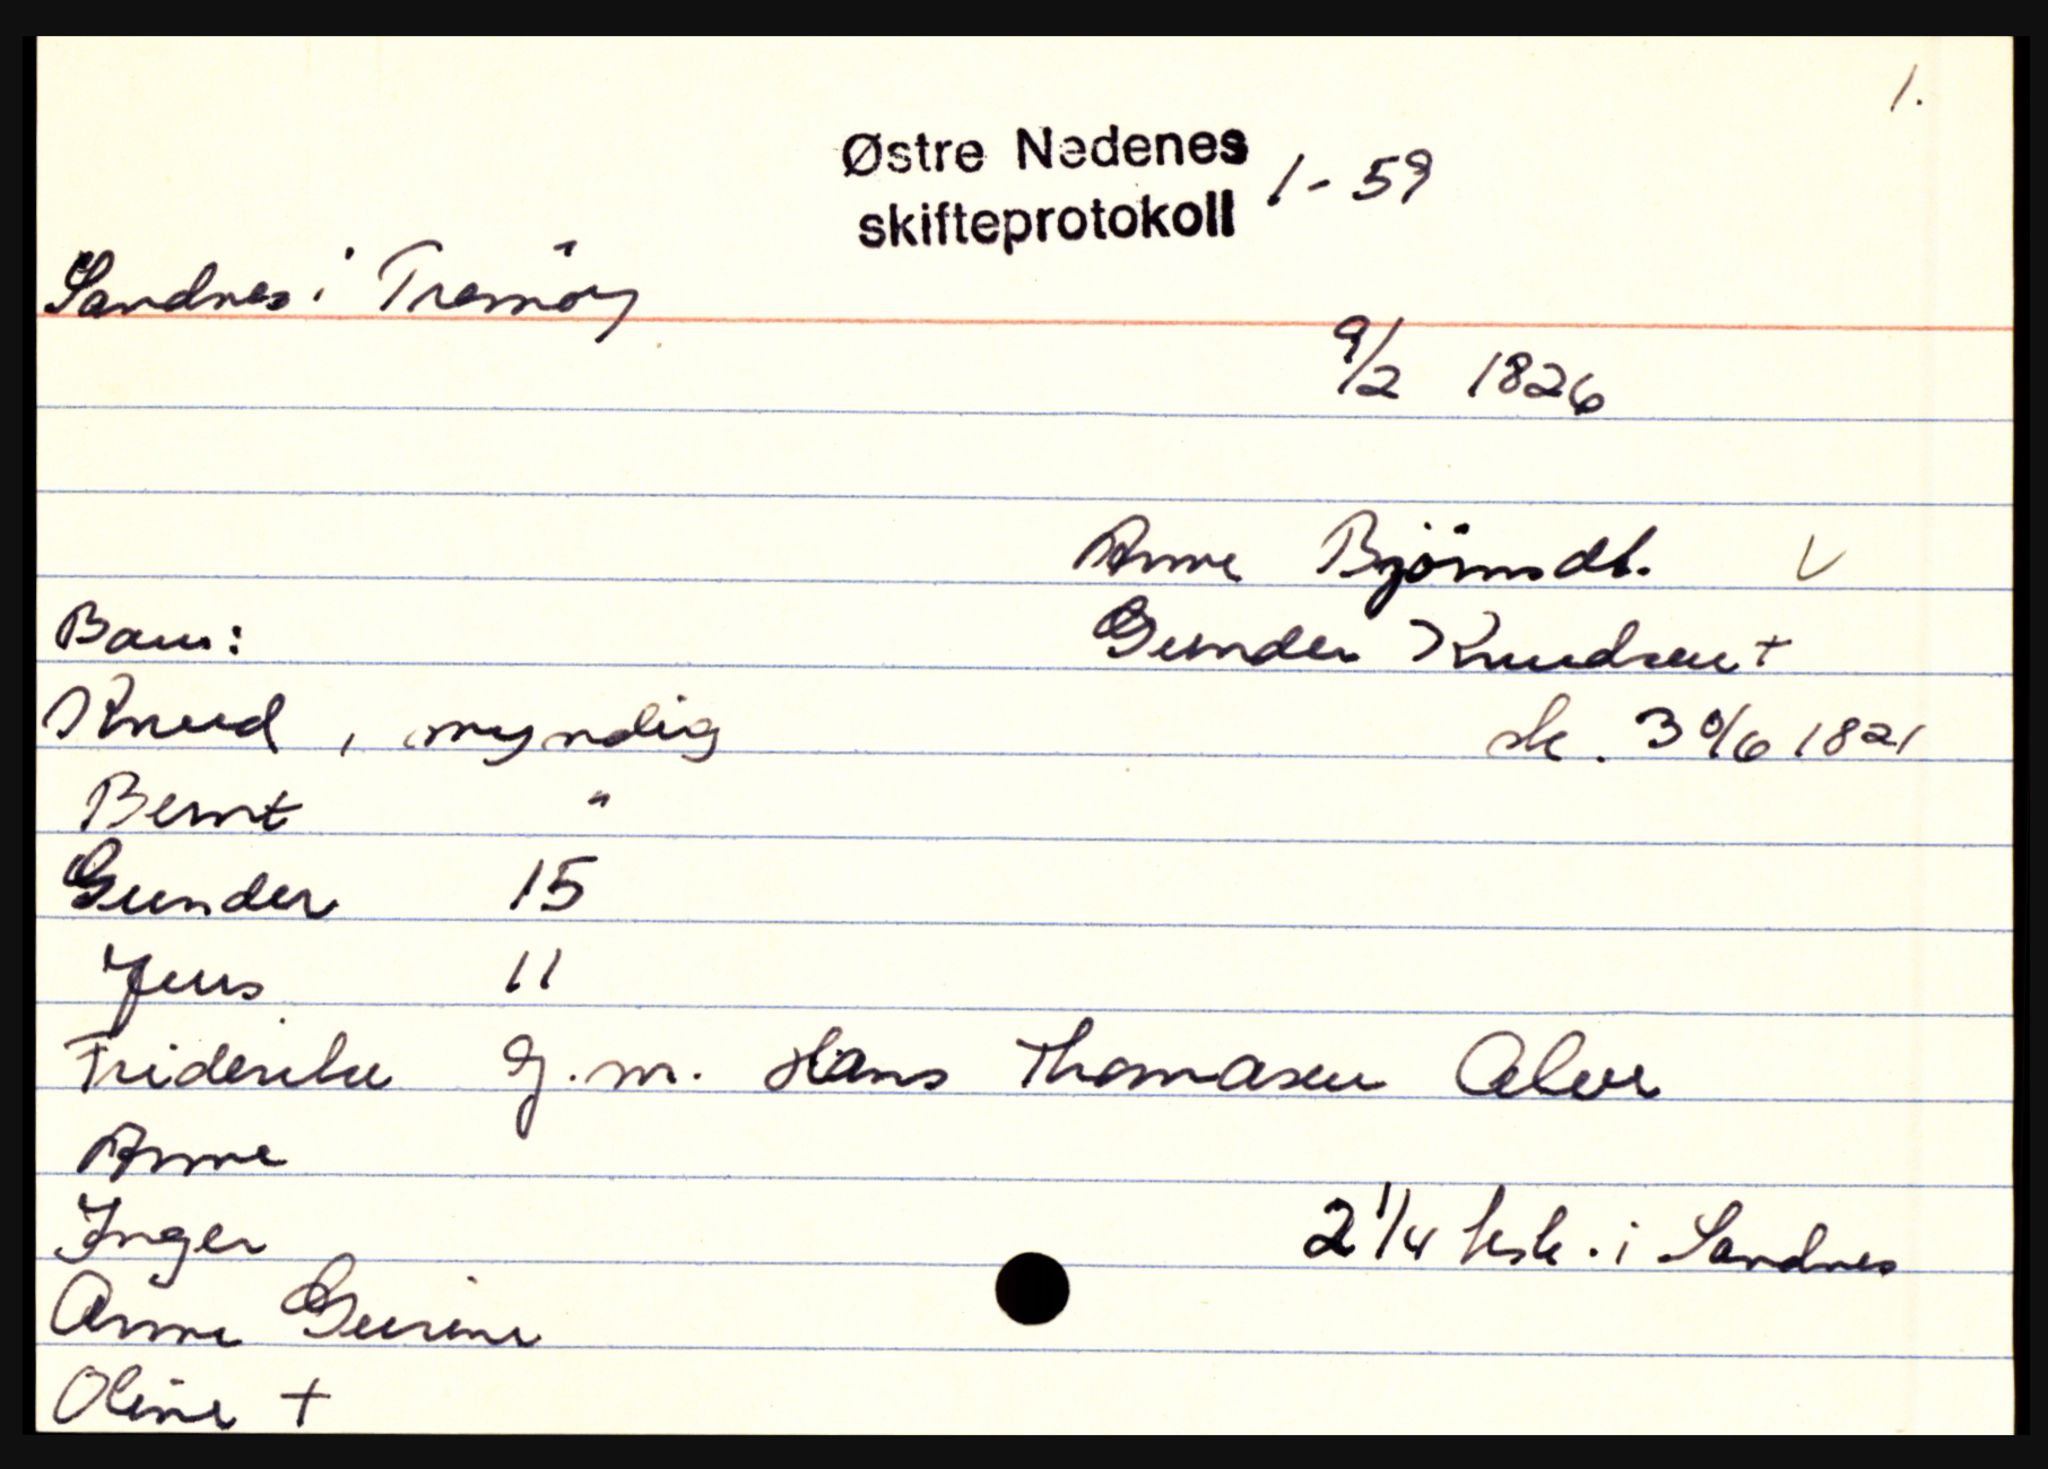 1.
Østre Nedenes
skifteprotokoll 1-59
Sandnes i Tromöy
9/2 1826
Anne Björnsdt. V
Barn: Gunder Knudsen +
Knud, myndig sk. 30/6 1821
Bernt "
Gunder 15
Jens 11
Friderike g.m. Hans Thomasen Alve
Anne
Inger 2 1/4 hsk. i Sandnes
Anne Gurine
Oline +